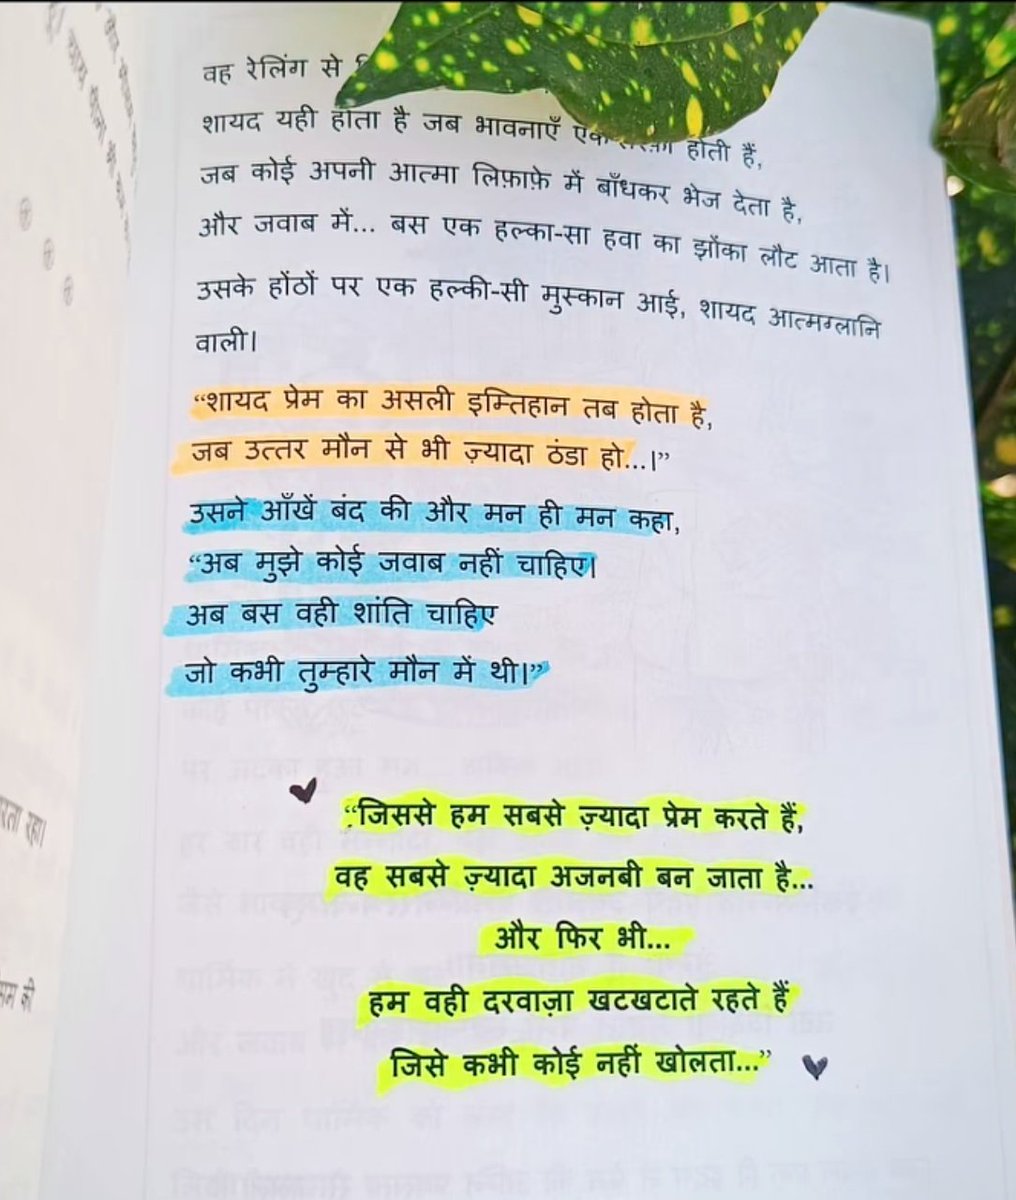 वह रेलिंग से
शायद यही होता है जब भावनाएँ होती हैं,
जब कोई अपनी आत्मा लिफ़ाफ़े में बाँधकर भेज देता है,
और जवाब में... बस एक हल्का-सा हवा का झोंका लौट आता है।
उसके होंठों पर एक हल्की-सी मुस्कान आई, शायद आत्मग्लानि
वाली।
“शायद प्रेम का असली इम्तिहान तब होता है,
जब उत्तर मौन से भी ज़्यादा ठंडा हो...।”
उसने आँखें बंद की और मन ही मन कहा,
“अब मुझे कोई जवाब नहीं चाहिए।
अब बस वही शांति चाहिए
जो कभी तुम्हारे मौन में थी।”
“जिससे हम सबसे ज़्यादा प्रेम करते हैं,
वह सबसे ज़्यादा अजनबी बन जाता है...
और फिर भी...
हम वही दरवाज़ा खटखटाते रहते हैं
जिसे कभी कोई नहीं खोलता...”